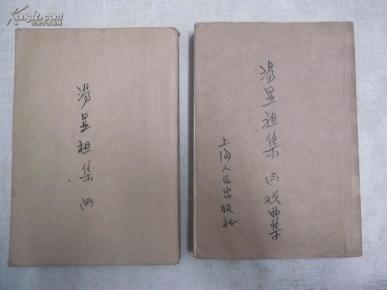 Kongfz.com
湯显祖集 四
湯显祖集 四 戏曲集
上海人民出版社